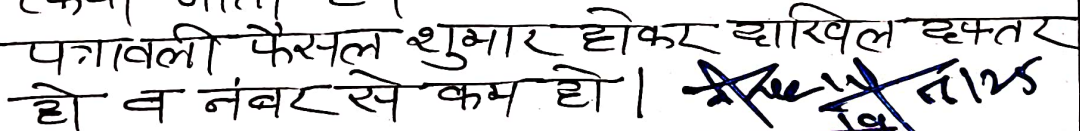 पत्रावली फैसल शुमार होकर दाखिल दफ्तर
हो व नंबर से कम हो।